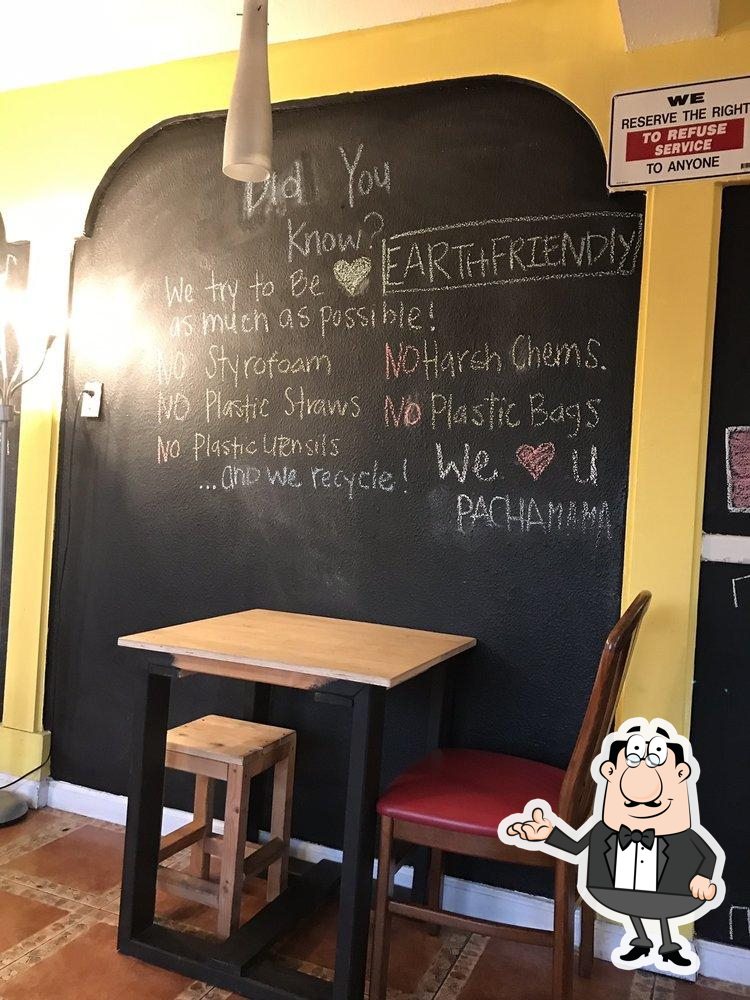 WE
RESERVE THE RIGHT
TO REFUSE
SERVICE
TO ANYONE
Did You
Know?
We try to Be ♥ EARTHFRIENDLY
as much as possible!
NO Styrofoam
NO Plastic Straws
No Plastic Utensils
...and we recycle!
NO Harsh Chems.
No Plastic Bags
We ♥ u
PACHAMAMA